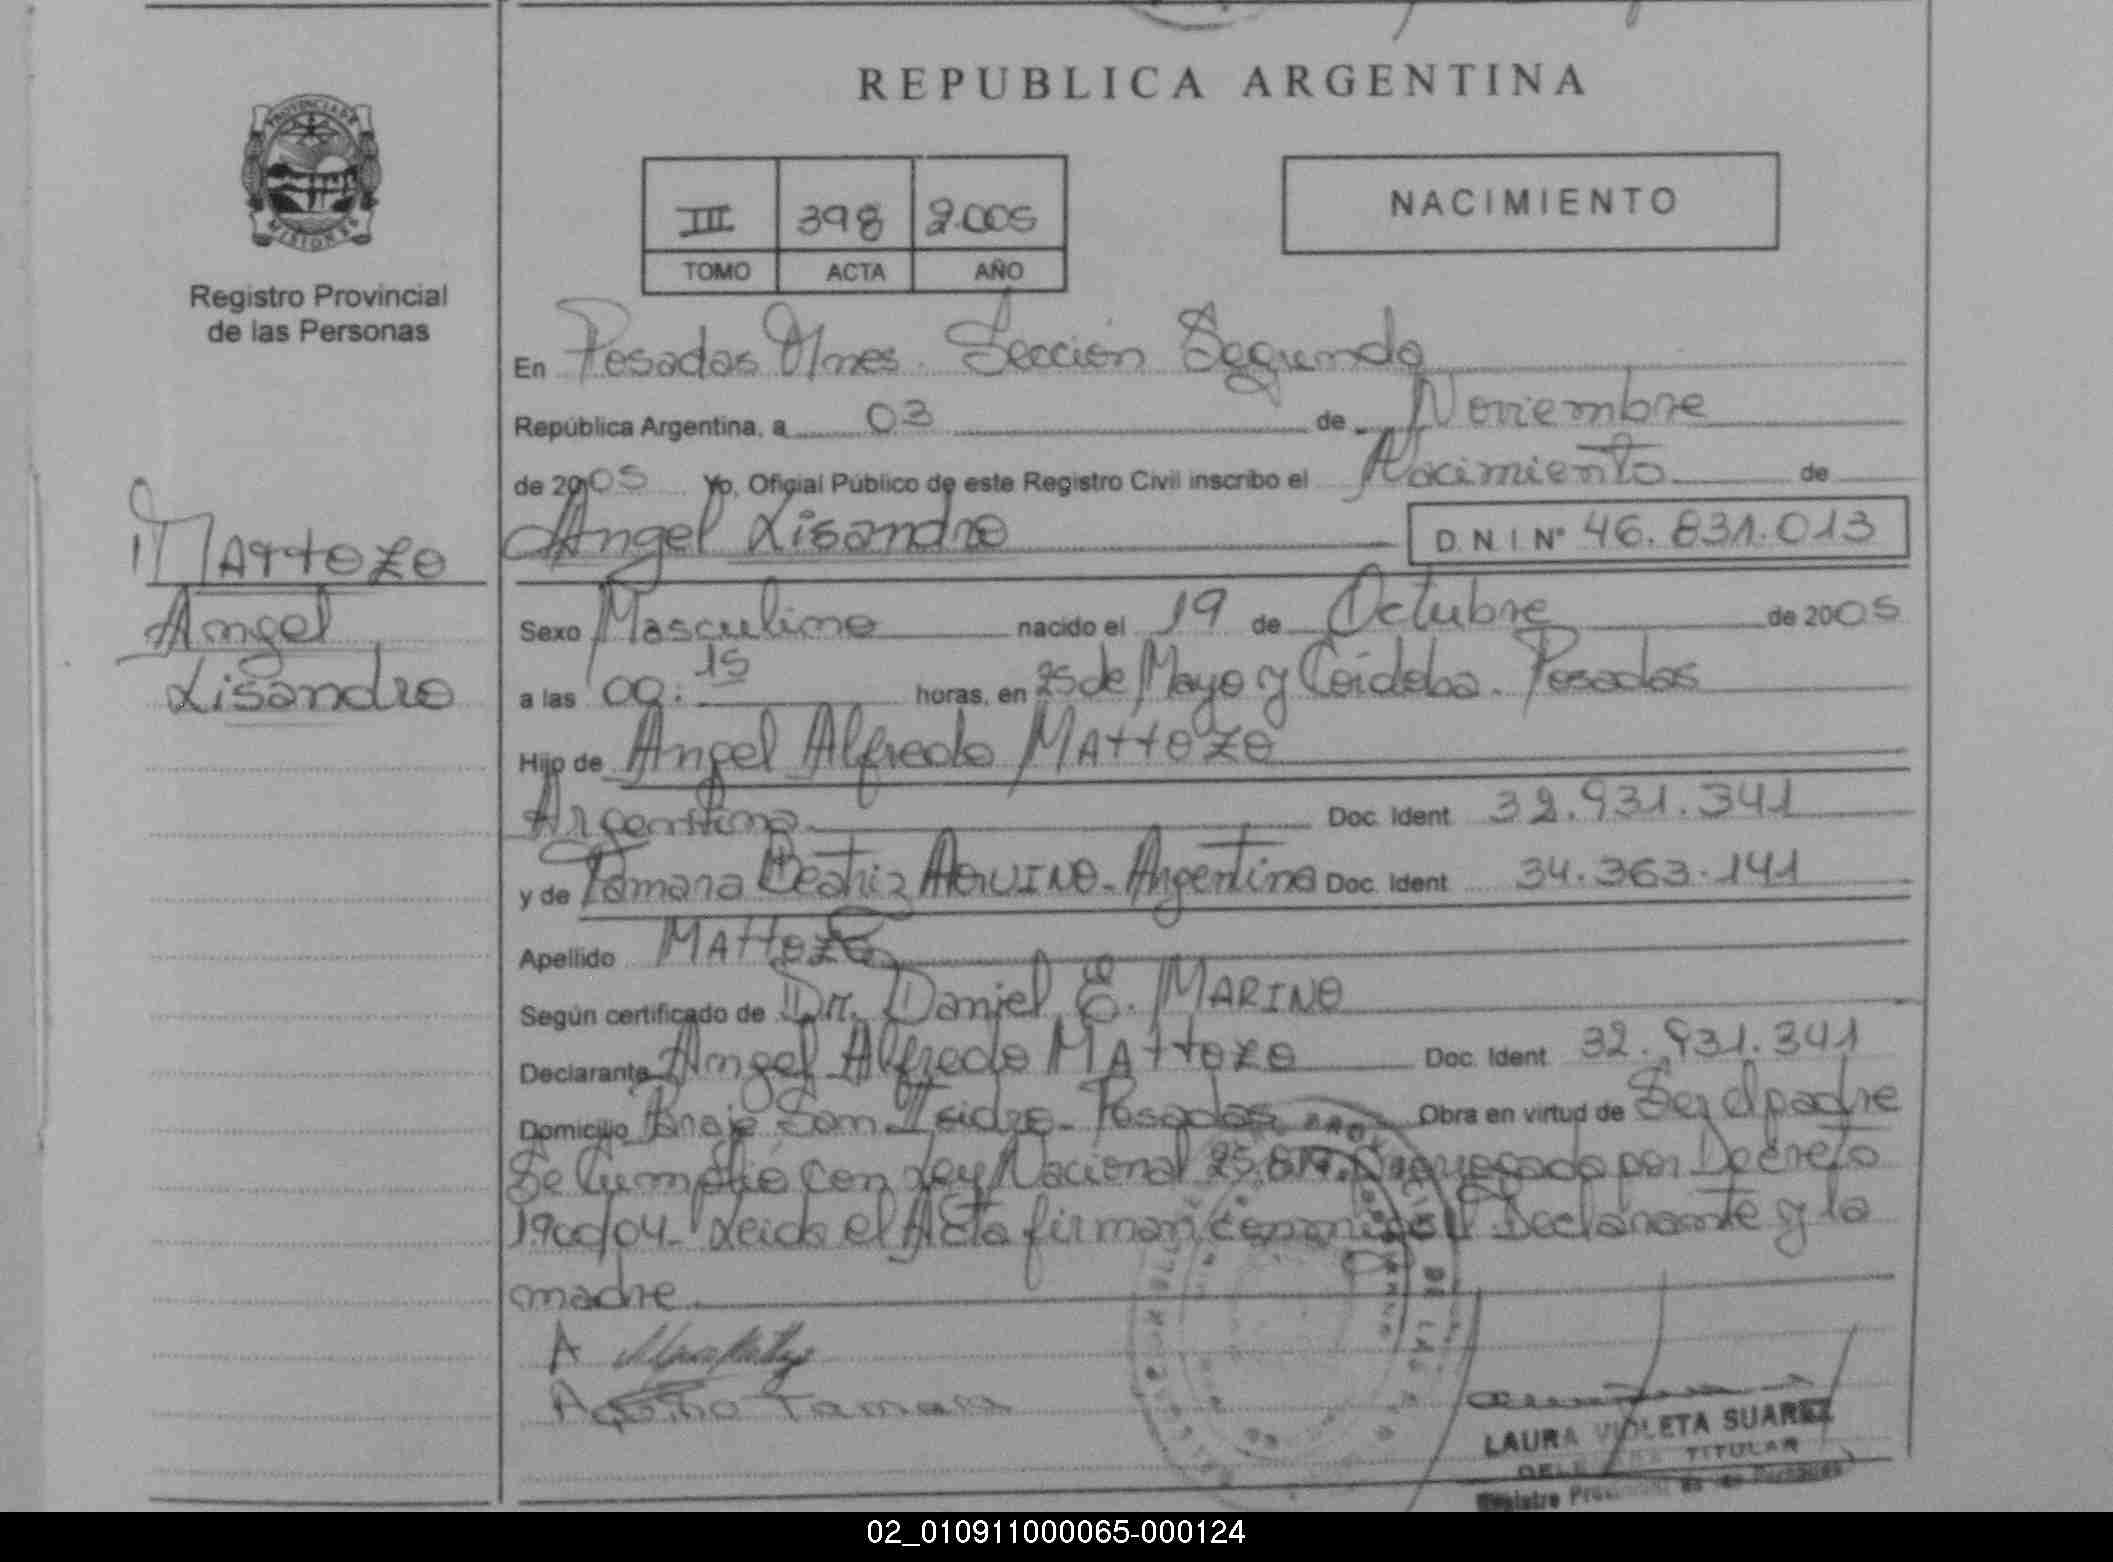 REPUBLICA ARGENTINA
PROVINCIA DE
MISIONES
Registro Provincial
de las Personas
III 398 2.005
TOMO ACTA AÑO
NACIMIENTO
En Posadas Mnes. Sección Segunda
República Argentina, a 03 de Noviembre
de 2005 Yo, Oficial Público de este Registro Civil inscribo el Nacimiento de
MATTOZO
Angel
Lisandro
Angel Lisandro D.N.I Nº 46.831.013
Sexo Masculino nacido el 19 de Octubre de 2005
a las 09:15 horas, en 25 de Mayo y Córdoba. Posadas
Hijo de Angel Alfredo MATTOZO
Argentino Doc. Ident 32.931.341
y de Tamara Beatriz AQUINO. Argentina Doc. Ident 34.363.141
Apellido MATTOZO
Según certificado de Dr. Daniel E. MARINO
Declarante Angel Alfredo MATTOZO Doc. Ident 32.931.341
Domicilio Paraje San Isidro. Posadas Obra en virtud de Ser el padre
Se Cumplió con Ley Nacional por Decreto
1900/04. Leida el Acta firman conmigo el Declarante y la
madre
A
Aquino Tamara
LAURA VIOLETA SUAREZ
TITULAR
Registro Provincial de las Personas
02_010911000065-000124